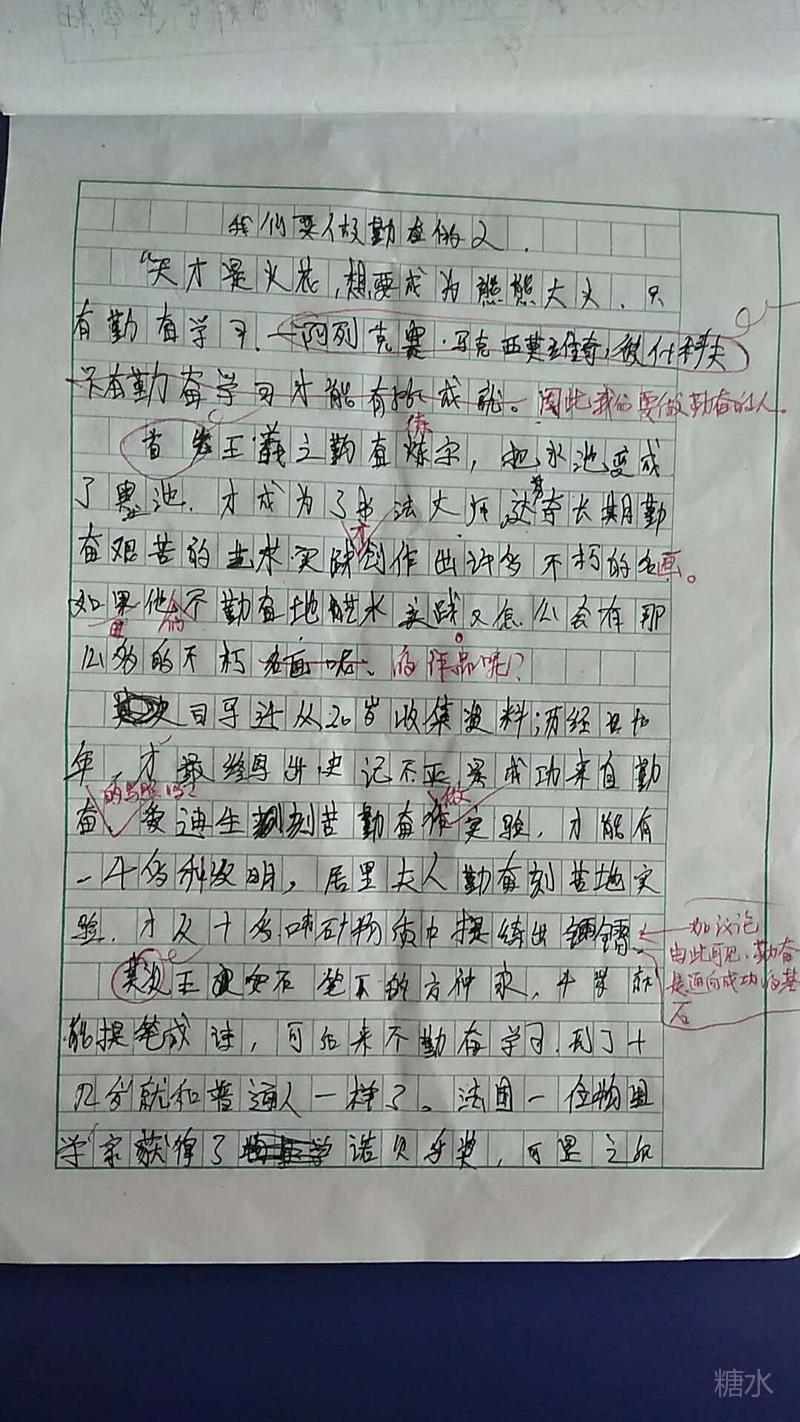 我们要做勤奋的人.
"天才是火花,想要成为熊熊大火.只
有勤奋学习.阿列克赛·马克西莫维奇,彼什科夫
只有勤奋学习才能有成就。因此我们要做勤奋的人。
练
首先王羲之勤奋炼字,把水池变成
了墨池.才成为了书法大师.达芬奇长期勤
才
奋艰苦的艺术实践创作出许多不朽的名画。
如果他们不勤奋地艺术实践又怎么会有那
么多的不朽名画呢。的作品呢?
司马迁从20岁收集资料,历经
年.才最终写出史记不正是成功来自勤
的写照吗? 做
奋.爱迪生刻苦勤奋作实验.才能有
一千多种发明,居里夫人勤奋刻苦地实
验.才从十多吨矿物质中提练出镭.
加议论
由此可见,勤奋
是通向成功的基
石
其次王安石笔下的方仲永,
能提笔成诗,可后来不勤奋学习.到了十
几岁就和普通人一样了。法国一位物理
学家获得了诺贝尔奖,可里之后
糖水